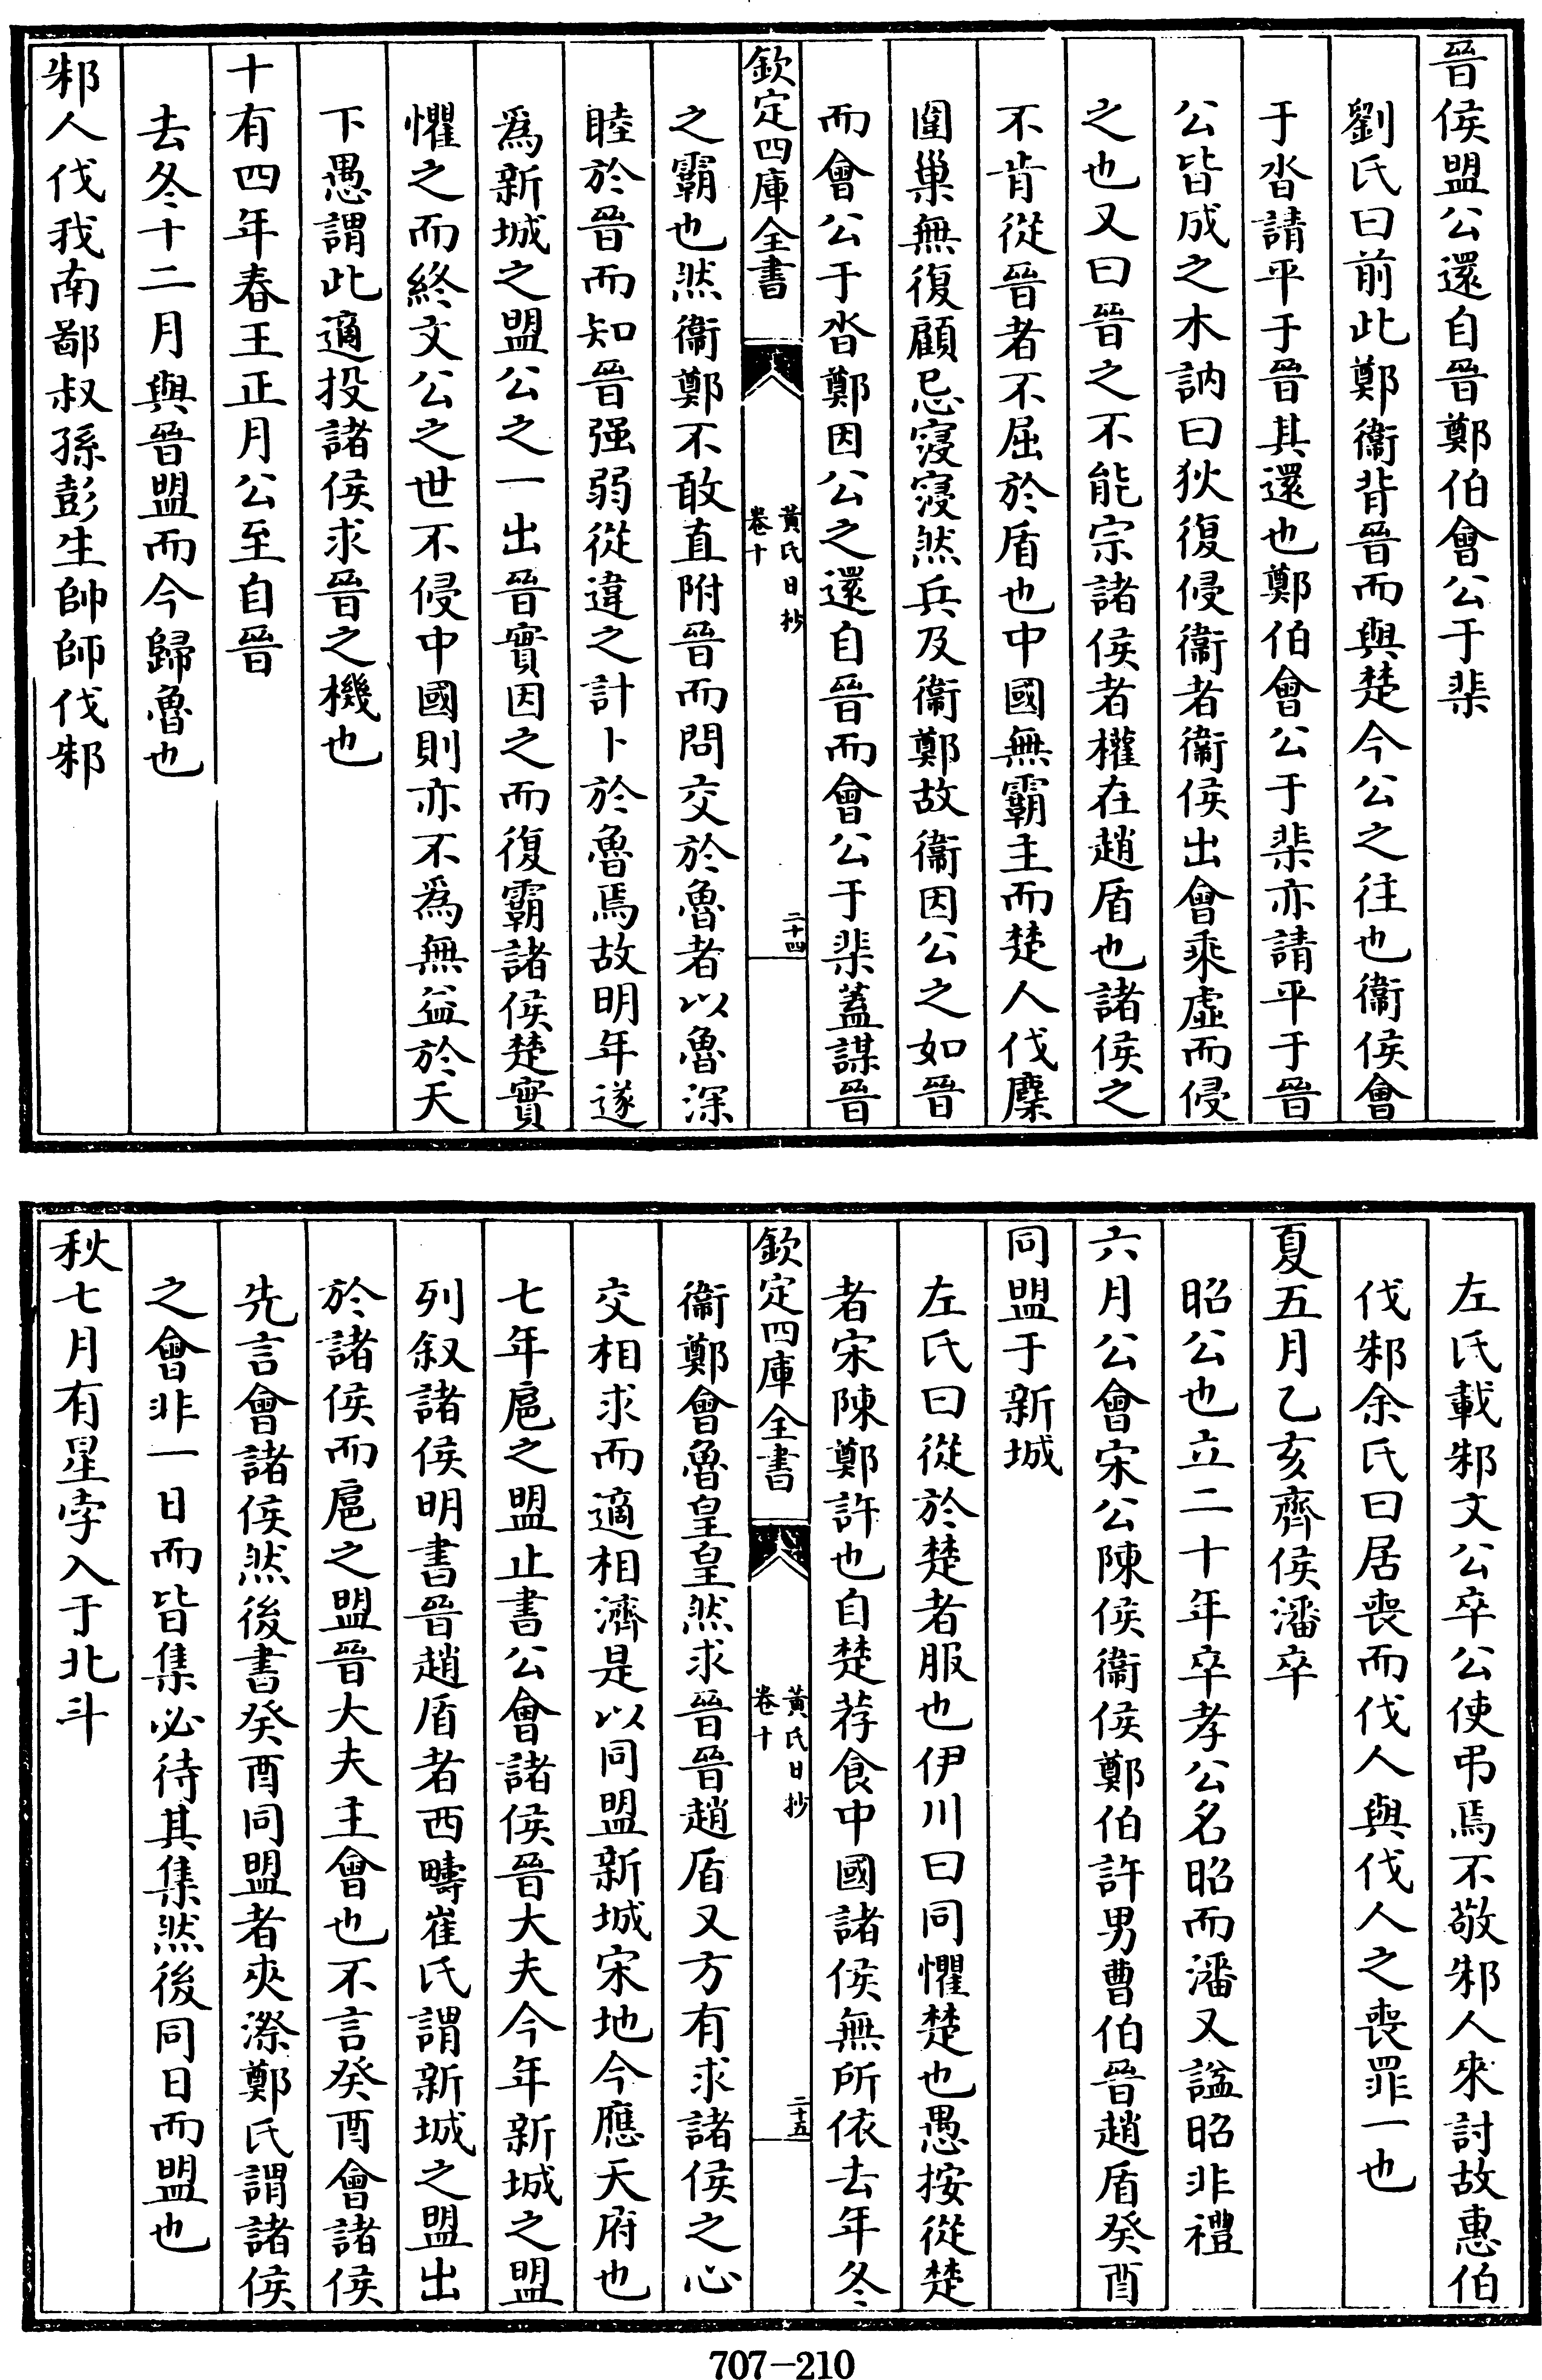 晉侯盟公還自晉鄭伯會公于棐
劉氏曰前此鄭衞背晉而與楚今公之往也衞侯會
于沓請平于晉其還也鄭伯會公于棐亦請平于晉
公皆成之木訥曰狄復侵衞者衞侯出會乘虛而侵
之也又曰晉之不能宗諸侯者權在趙盾也諸侯之
不肯從晉者不屈於盾也中國無霸主而楚人伐麇
圍巢無復顧忌寖寖然兵及衞鄭故衞因公之如晉
而會公于沓鄭因公之還自晉而會公于棐蓋謀晉
欽定四庫全書
黃氏日抄
卷十
二十四
之霸也然衞鄭不敢直附晉而問交於魯者以魯深
睦於晉而知晉强弱從違之計卜於魯焉故明年遂
爲新城之盟公之一出晉實因之而復霸諸侯楚實
懼之而終文公之世不侵中國則亦不爲無益於天
下愚謂此適投諸侯求晉之機也
十有四年春王正月公至自晉
去冬十二月與晉盟而今歸魯也
邾人伐我南鄙叔孫彭生帥師伐邾
左氏載邾文公卒公使弔焉不敬邾人來討故惠伯
伐邾余氏曰居喪而伐人與伐人之喪罪一也
夏五月乙亥齊侯潘卒
昭公也立二十年卒孝公名昭而潘又諡昭非禮
六月公會宋公陳侯衞侯鄭伯許男曹伯晉趙盾癸酉
同盟于新城
左氏曰從於楚者服也伊川曰同懼楚也愚按從楚
者宋陳鄭許也自楚荐食中國諸侯無所依去年冬
欽定四庫全書
黃氏日抄
卷十
二十五
衞鄭會魯皇皇然求晉晉趙盾又方有求諸侯之心
交相求而適相濟是以同盟新城宋地今應天府也
七年扈之盟止書公會諸侯晉大夫今年新城之盟
列叙諸侯明書晉趙盾者西疇崔氏謂新城之盟出
於諸侯而扈之盟晉大夫主會也不言癸酉會諸侯
先言會諸侯然後書癸酉同盟者夾漈鄭氏謂諸侯
之會非一日而皆集必待其集然後同日而盟也
秋七月有星孛入于北斗
707-210